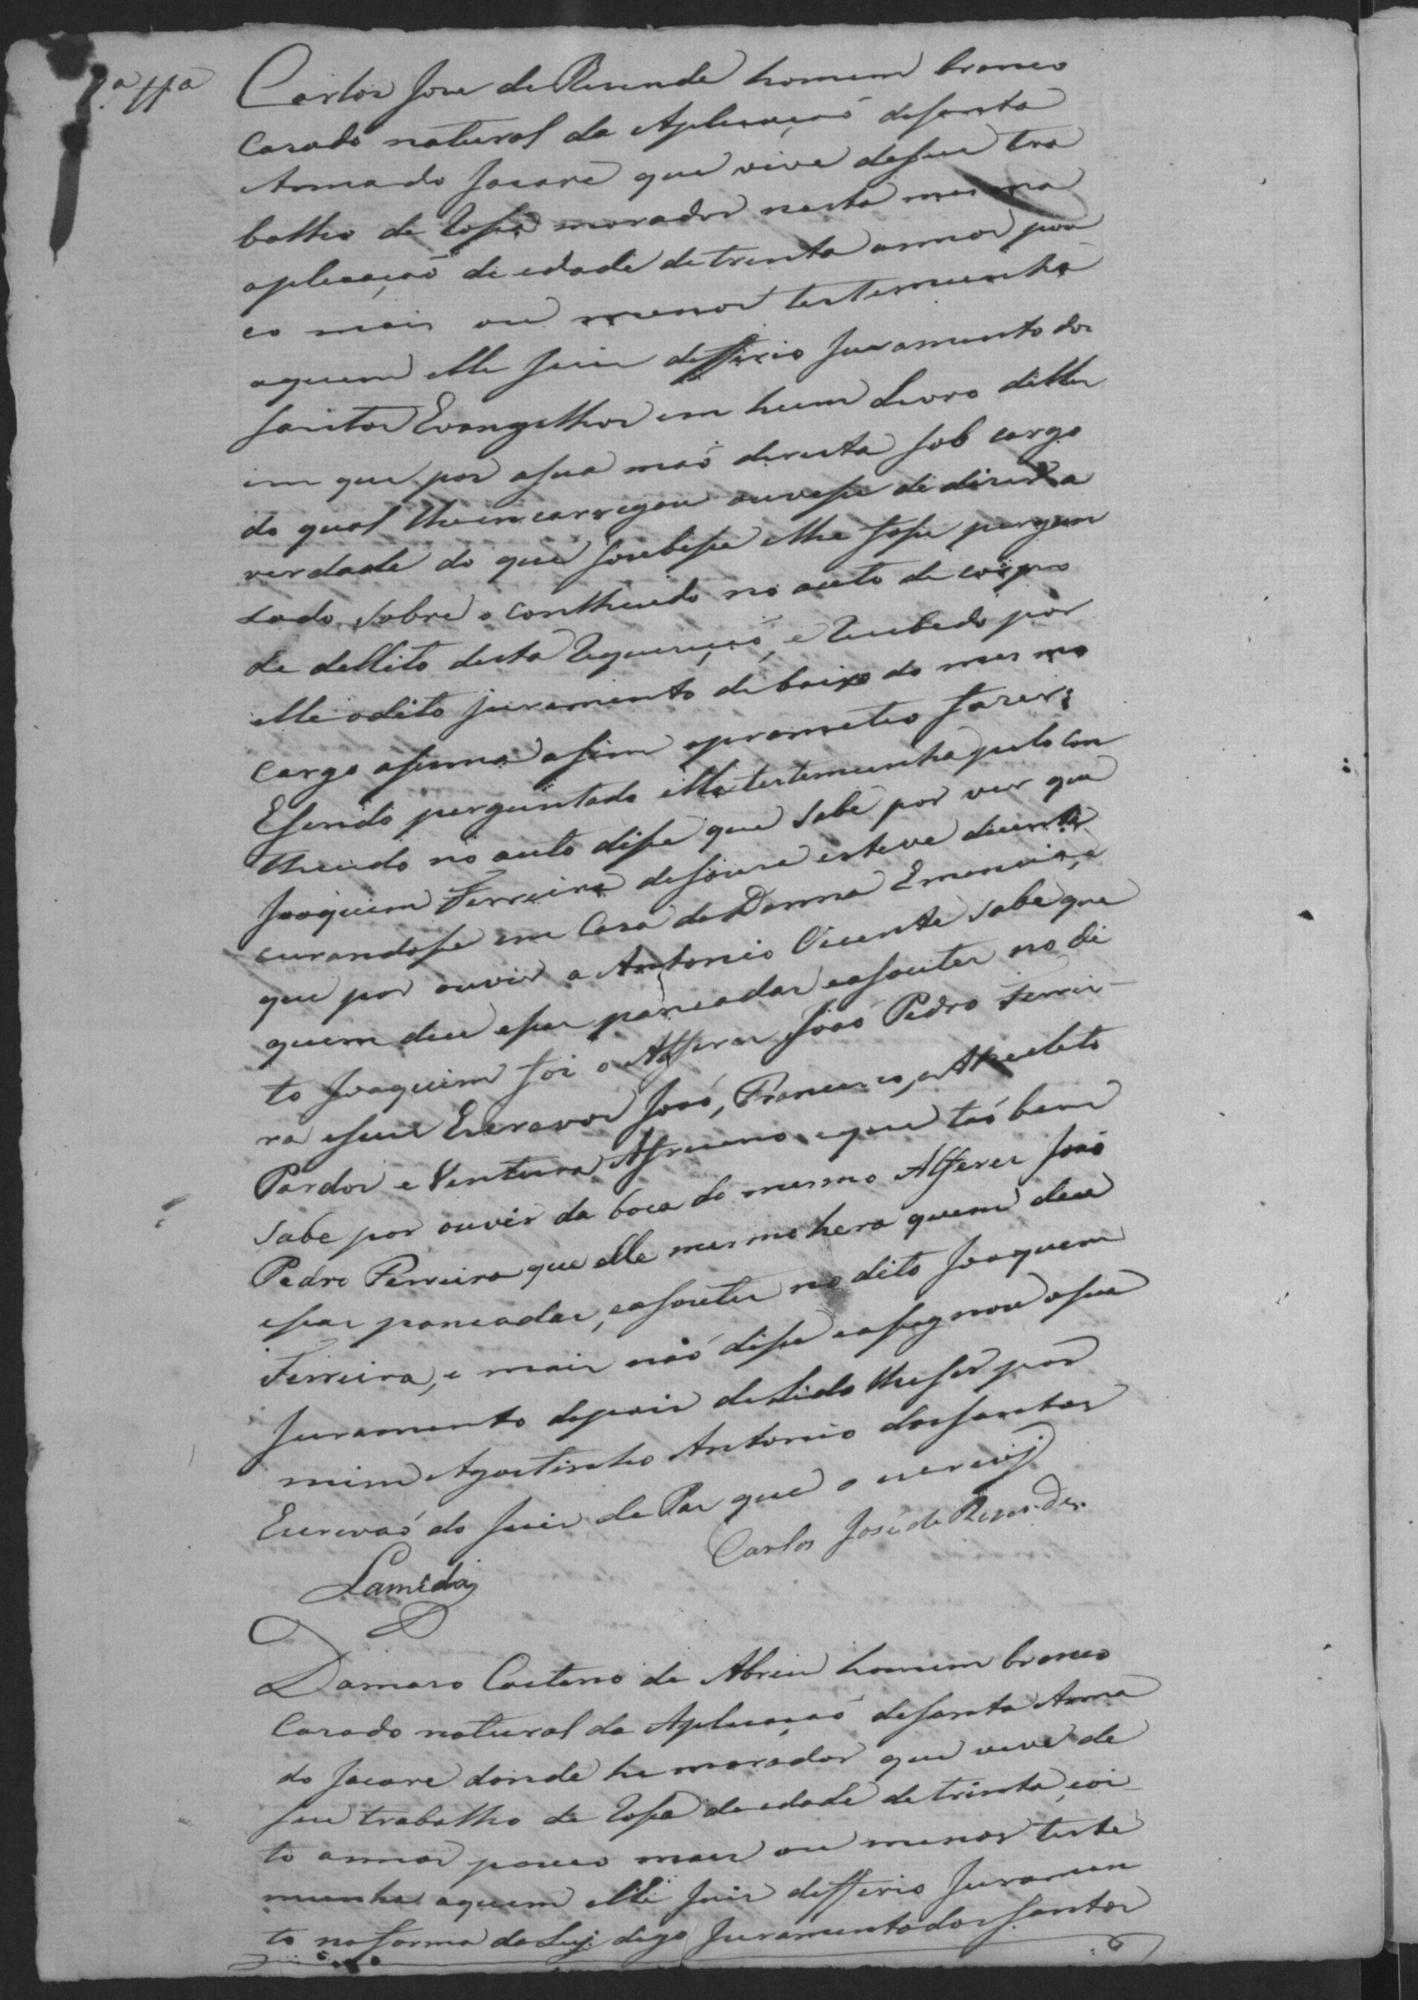 Carlos Jose de Resende homem branco
Casado natural da Aplicaçaõ desanta
Anna do Jacaré que vive deseu tra
balho de Rossa morador nesta mesma
aplicaçaõ de edade de trinta annos pou
co mais ou menos testemunha
aquem elle Juis defferio Juramento dos
santos Evangelhos em hum Livro delles
em que pos asua maõ direita sob cargo
do qual lhe incarregou ouvesse de dizer a
verdade do que soubesse elhe fosse pergun
tado sobre o conthiudo no auto de corpo
de dellito desta Requeriçaõ, e Recebido por
elle odito juramento debaixo do mesmo
cargo assima assim oprometeo fazer;
Esendo perguntado elle testemunha pelo con
theudo no auto disse que sabe por ver que
Joaquim Ferreira desouza esteve duente
curandosse em Casa de Donna Emerencia, e
que por ouvir a Antonio Vicente sabe que
quem deu essas pancadas easoutes no di
to Joaquim foi o Alferes Joaõ Pedro Ferrei-
ra eseus Escravos Joaõ, Francisco, e Anacleto
Pardos e Ventura Africano eque taõ bem
sabe por ouvir da boca do mesmo Alferes Joaõ
Pedro Ferreira que elle mesmo hera quem deu
essas pancadas, easoutes no dito Joaquim
Ferreira, e mais naõ disse easignou oseu
Juramento depois delido lhe ser por
mim Agostinho Antonio dos santos
Escrivaõ do Juis de Paz que o escrevij
Carlos José de Resende.
Lameda
Damaso Caetano de Abreu homem branco
Casado natural da Aplicaçaõ desanta Anna
do Jacaré donde he morador que vive de
seu trabalho de Rossa de edade de trinta, eoi
to annos pouco mais ou menos teste
munha aquem elle Juis defferio Juramen
to na forma da Ley digo Juramento dos santos